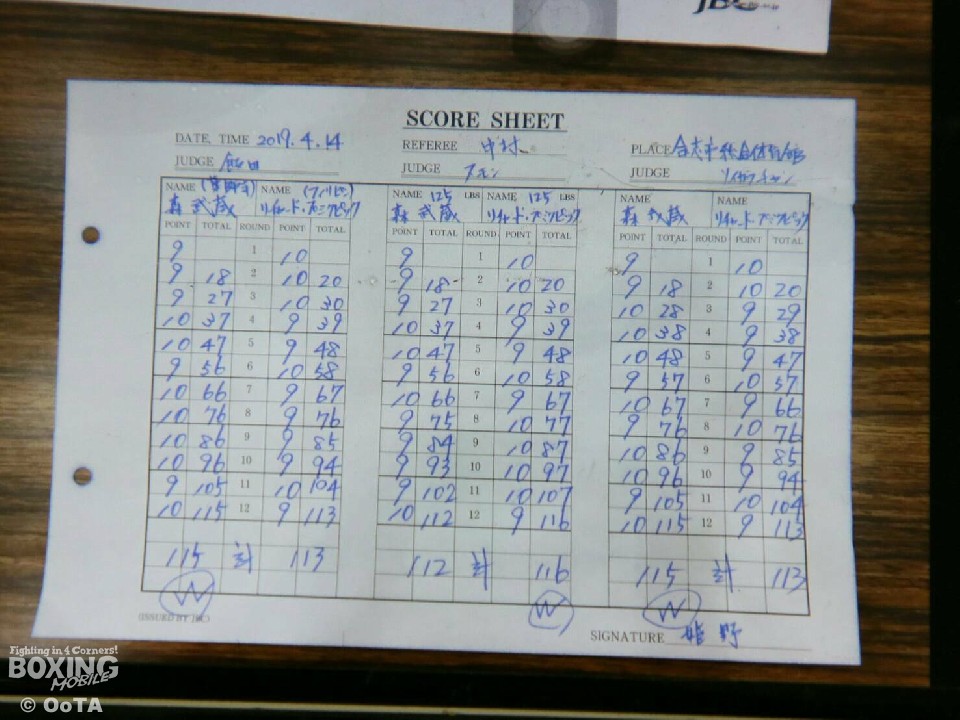 JBC
SCORE SHEET
DATE, TIME 2019. 4. 14 REFEREE 中村 PLACE 合志市総合体育館
JUDGE 飯田 JUDGE JUDGE
NAME NAME (フィリピン) NAME 125 LBS NAME 125 LBS NAME NAME
森 武蔵 リチャード・ 森 武蔵 リチャード・ 森 武蔵 リチャード・
POINT TOTAL ROUND POINT TOTAL POINT TOTAL ROUND POINT TOTAL POINT TOTAL ROUND POINT TOTAL
9 1 10 9 1 10 9 1 10
9 18 2 10 20 9 18 2 10 20 9 18 2 10 20
9 27 3 10 30 9 27 3 10 30 10 28 3 9 29
10 37 4 9 39 10 37 4 9 39 10 38 4 9 38
10 47 5 9 48 10 47 5 9 48 10 48 5 9 47
9 56 6 10 58 9 56 6 10 58 9 57 6 10 57
10 66 7 9 67 10 66 7 9 67 10 67 7 9 66
10 76 8 9 76 9 75 8 10 77 9 76 8 10 76
10 86 9 9 85 9 84 9 10 87 10 86 9 9 85
10 96 10 9 94 9 93 10 10 97 10 96 10 9 94
9 105 11 10 104 9 102 11 10 107 9 105 11 10 104
10 115 12 9 113 10 112 12 9 116 10 115 12 9 113
115 計 113 112 計 116 115 計 113
W W W
(ISSUED BY JBC) SIGNATURE 姫野
Fighting in 4 Corners!
BOXING
MOBILE
© OoTA